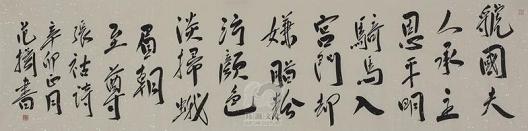 虢國夫
人承主
恩平明
騎馬入
宮門却
嫌脂粉
污顏色
淡掃蛾
眉朝
至尊
張祜詩
辛卯正月
書